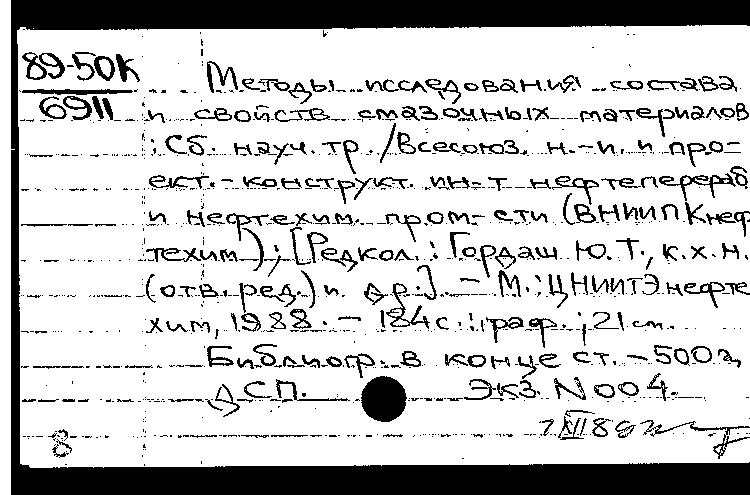 89-50К
6911
Методы исследования состава
и свойств смазочных материалов
: Сб. науч. тр. / Всесоюз. н.-и. и про-
ект.-конструкт. ин-т нефтеперераб
и нефтехим. пром-сти (ВНИИПКнеф
техим); [Редкол.: Гордаш Ю.Т., к.х.н.
(отв. ред.) и др.]. - М.: ЦНИИТЭнефте
хим, 1988. - 184 с. : граф. ; 21 см.
Библиогр. в конце ст. - 500 э,
ДСП. Экз. N 004.
8